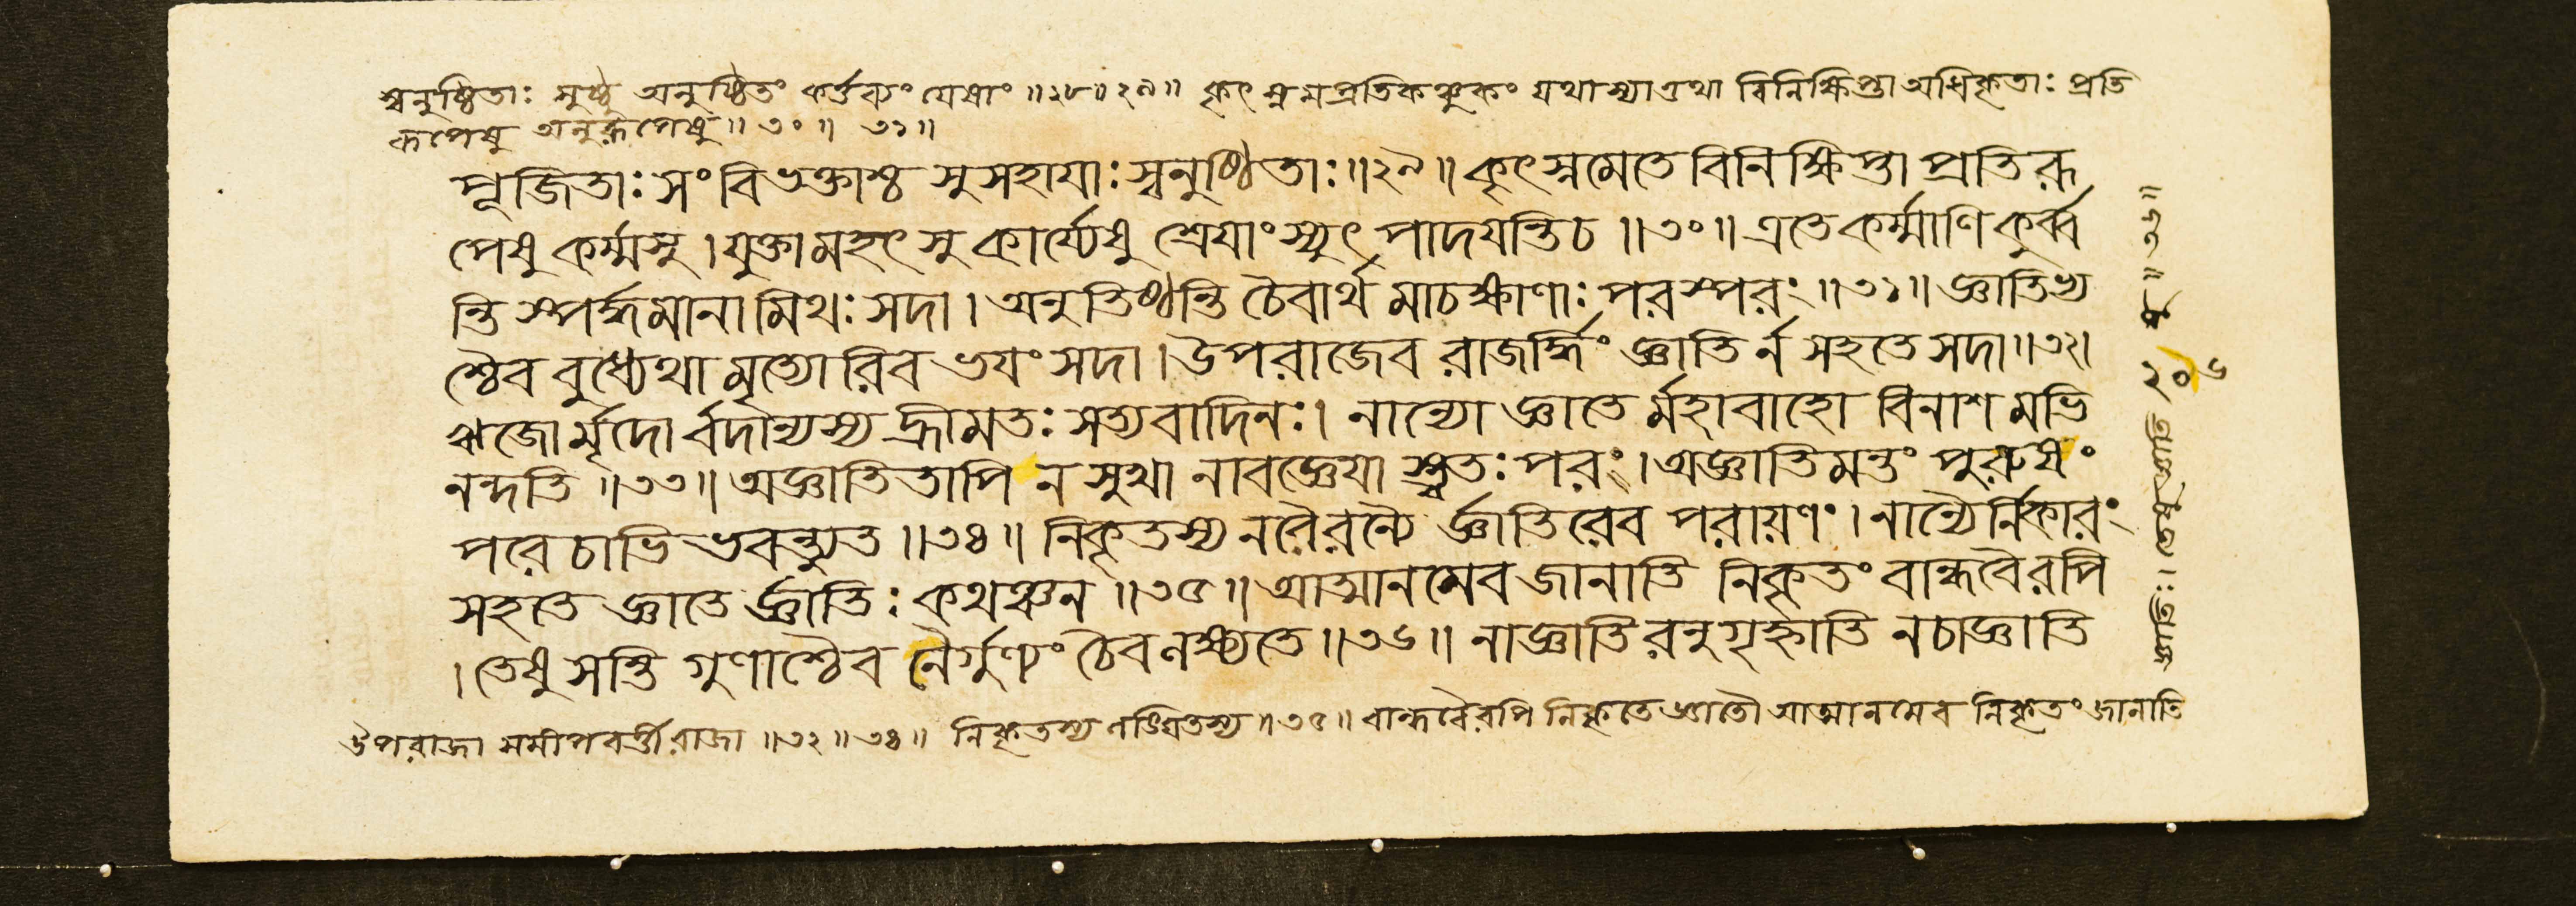 স্বনুষ্ঠিতাঃ সুষ্ঠু অনুষ্ঠিতং কর্ত্তব্যং যেষাং ॥২৮॥২৯॥ কৃৎস্নমপ্রতিকঞ্চুকং যথাস্যাত্তথা বিনিক্ষিপ্তা অধিকৃতাঃ প্রতি
রূপেষু অনুরূপেষু ॥ ৩০ ॥ ৩১ ॥
পূজিতাঃ সংবিভক্তাশ্চ সুসহাযাঃ স্বনুষ্ঠিতাঃ ॥২৯॥ কৃৎস্নমেতে বিনিক্ষিপ্তা প্রতিরূ
পেষু কর্ম্মসু । যুক্তা মহৎসু কার্য্যেষু শ্রেযাংস্যুৎপাদযন্তি চ ॥৩০॥ এতে কর্ম্মাণি কুর্ব্ব
ন্তি স্পর্দ্ধমানা মিথঃ সদা । অনুতিষ্ঠন্তি চৈবার্থমাচক্ষাণাঃ পরস্পরং ॥৩১॥ জ্ঞাতিভ্য
শ্চৈব বুধ্যেথা মৃত্যোরিব ভযং সদা । উপরাজেব রাজর্দ্ধিং জ্ঞাতির্ন সহতে সদা ॥৩২।
ঋজোর্মৃদোর্বদান্যস্য হ্রীমতঃ সত্যবাদিনঃ । নান্যো জ্ঞাতের্মহাবাহো বিনাশমভি
নন্দতি ॥৩৩॥ অজ্ঞাতিতাপি ন সুখা নাবজ্ঞেযা স্ত্বতঃ পরং । অজ্ঞাতিমন্তং পুরুষং
পরে চাভিভবন্ত্যুত ॥৩৪॥ নিকৃতস্য নরৈরন্যৈ র্জ্ঞাতিরেব পরায়ণং । নান্যৈর্নিকারং
সহতে জ্ঞাতের্জ্ঞাতিঃ কথঞ্চন ॥৩৫॥ আত্মানমেব জানাতি নিকৃতং বান্ধবৈরপি
। তেষু সন্তি গুণাশ্চৈব নৈর্গুণ্যং চৈব লক্ষ্যতে ॥৩৬॥ নাজ্ঞাতিরনুগৃহ্নাতি নচাজ্ঞাতি
উপরাজা সমীপবর্ত্তী রাজা ॥৩২॥৩৪॥ নিকৃতস্য লঙ্ঘিতস্য ॥৩৫॥ বান্ধবৈরপি নিকৃতে জ্ঞাতৌ আত্মানমেব নিকৃতং জানাতি
জ্ঞাতিঃ । তেষু জ্ঞাতি ২০৬ ষু ॥ ৩৬॥